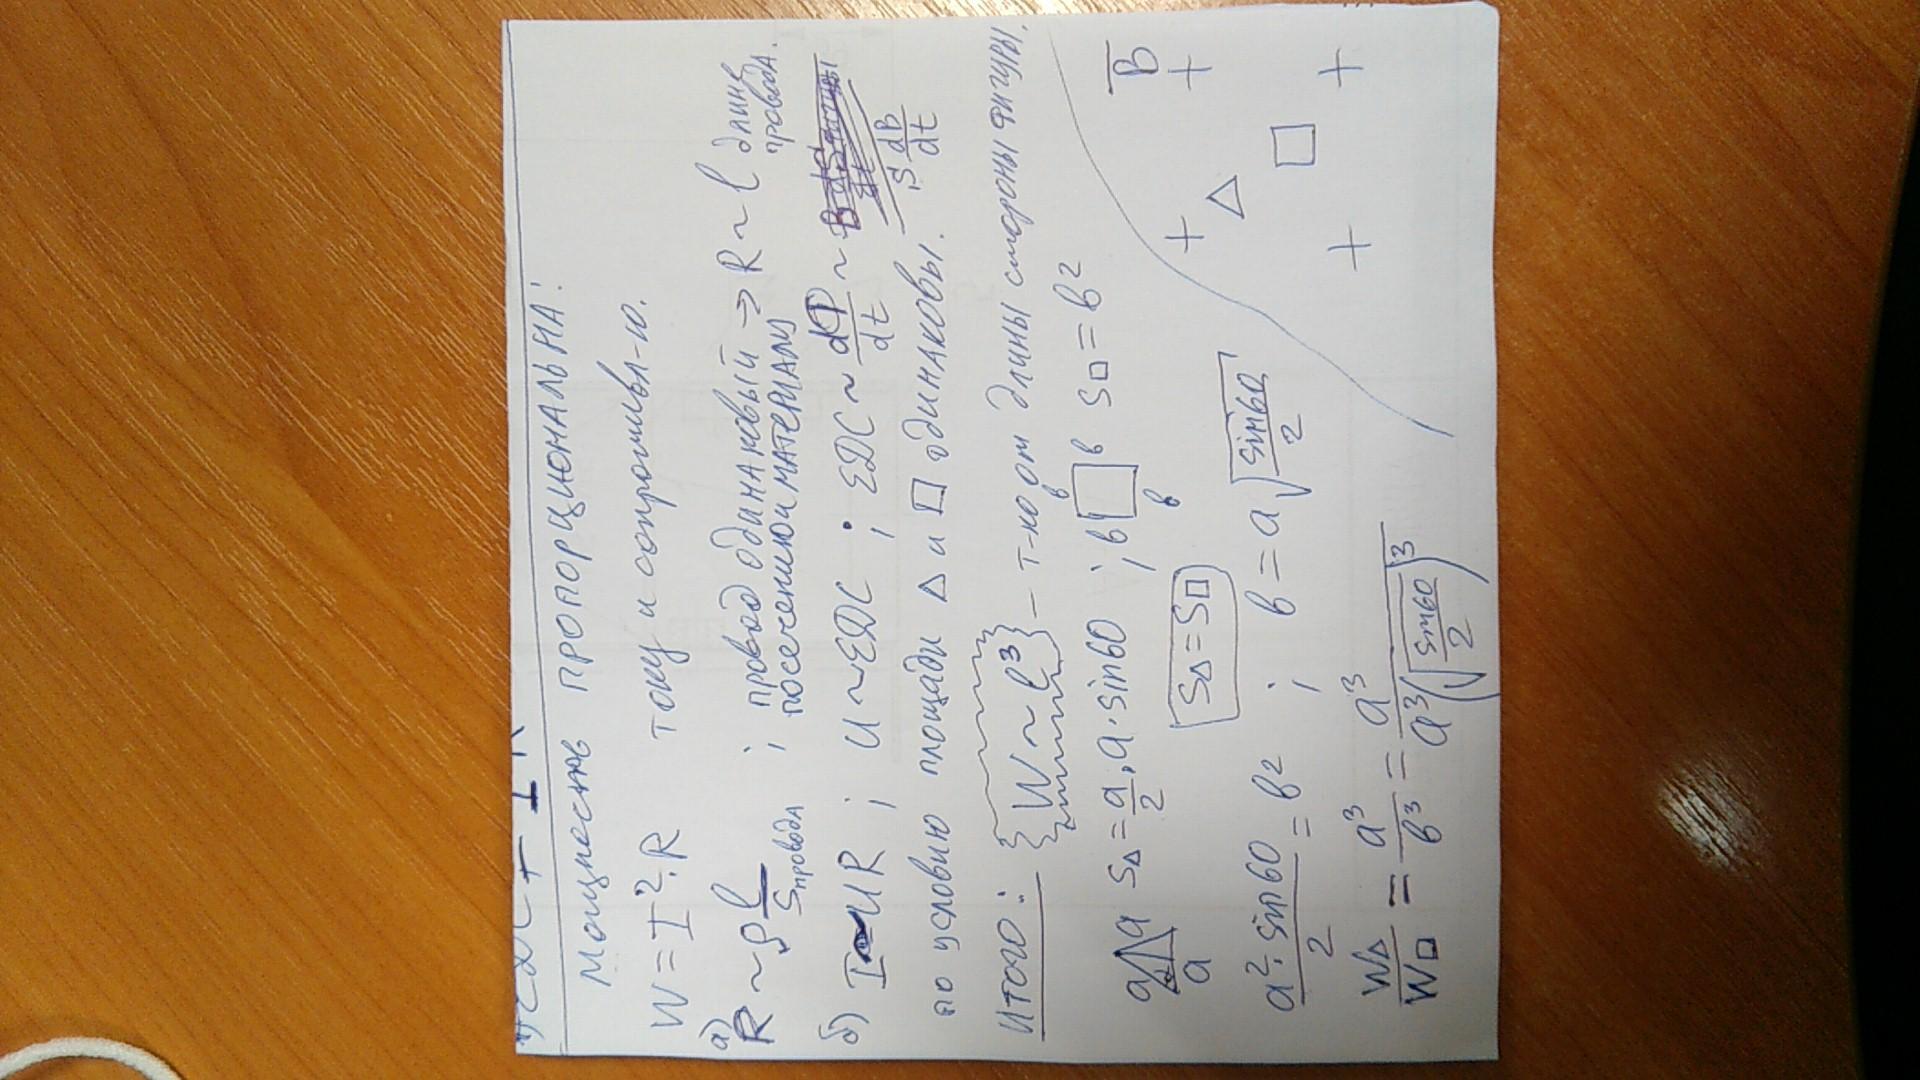 Мощность ПРОПОРЦИОНАЛЬНА:
W = I². R току и сопротивл-ю.
а) R ~ ρ l/Sпровода ; провод одинаковый по сечению и материалу => R ~ l длине провода.
б) I ~ UR ; U ~ ЕДС ; ЕДС ~ dФ/dt ~ S dB/dt
по условию площади △ и □ одинаковы.
Итого: {W ~ l³} – т-ко от длины стороны фигуры.
a a a S△ = a/2 · a · sin60 ; в в в в S□ = в²
S△ = S□
a² · sin60/2 = в² ; в = a√(sin60/2)
W△/W□ = a³/в³ = a³/a³(√(sin60/2))³
B
+ +
△ □
+ +